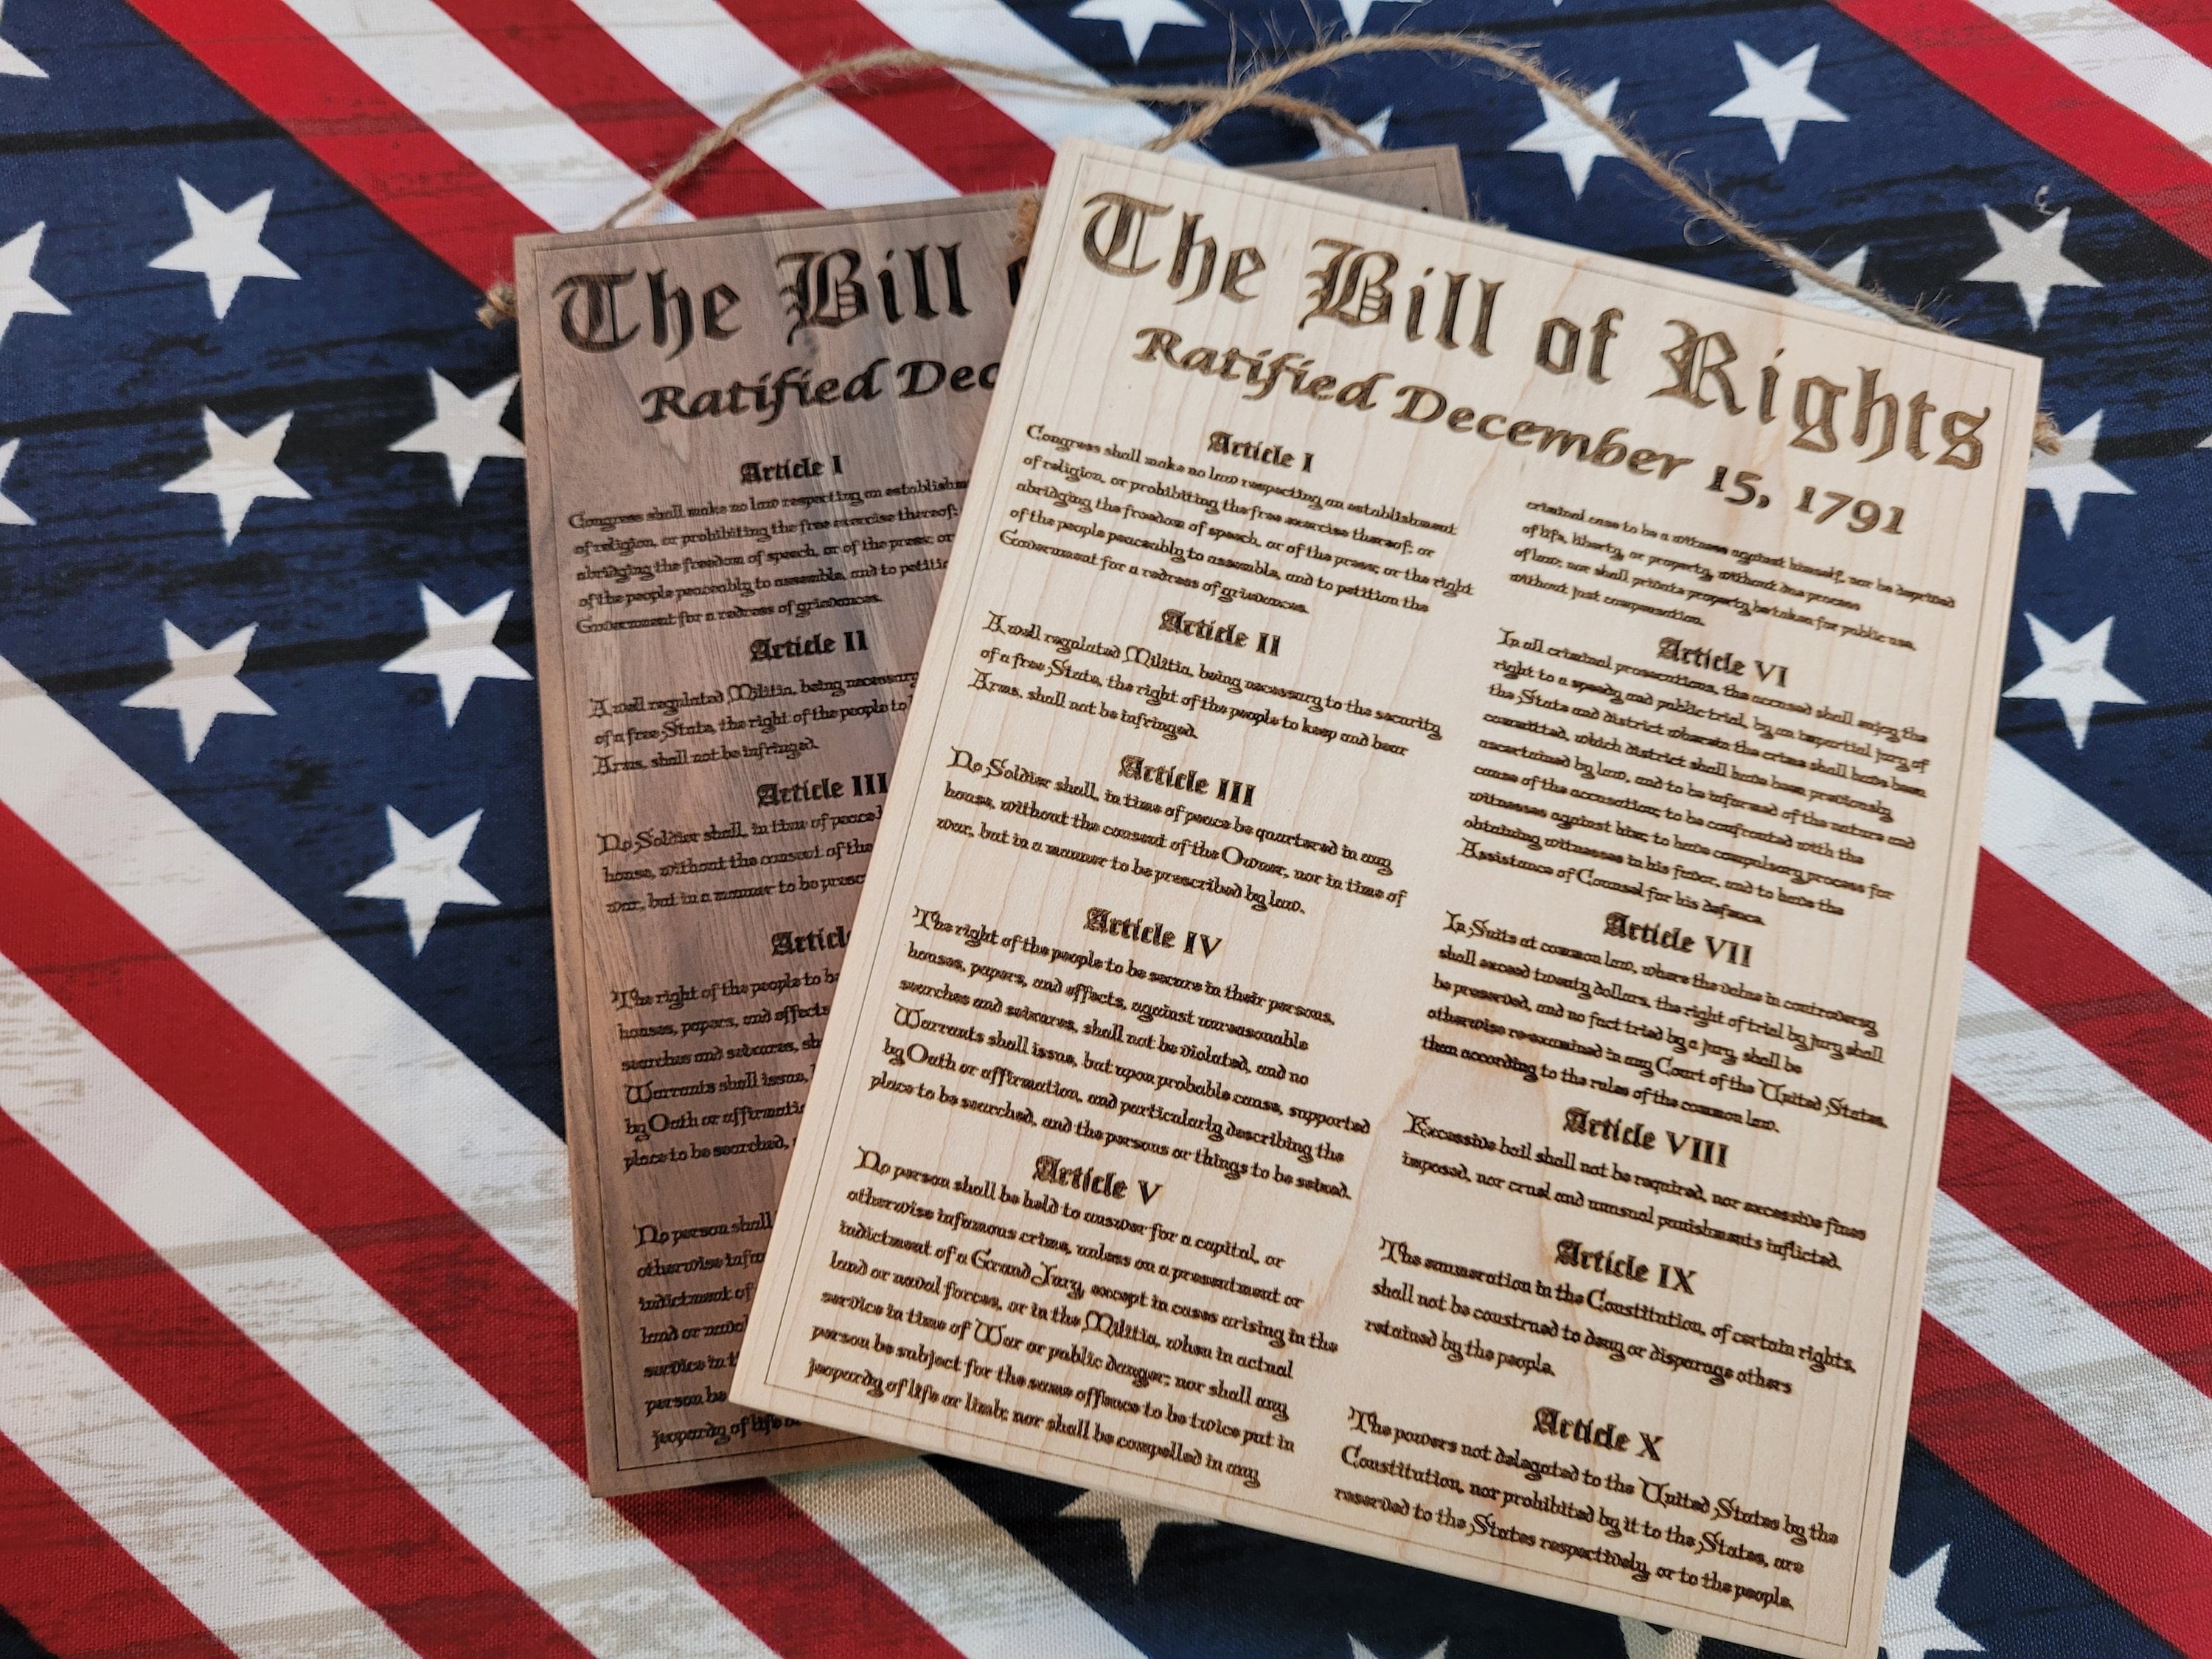 The Bill
Ratified Dec
Article I
Congress shall make no law respecting an establishm
of religion, or prohibiting the free exercise thereof; or
abridging the freedom of speech, or of the press; or
of the people peaceably to assemble, and to petitio
Government for a redress of grievances.
Article II
A well regulated Militia, being necessary
of a free State, the right of the people to
Arms, shall not be infringed.
Article III
No Soldier shall, in time of peace
house, without the consent of the
war, but in a manner to be presc
Article
The right of the people to be
houses, papers, and effects
searches and seizures, sh
Warrants shall issue,
by Oath or affirmatio
place to be searched,
No person shall
otherwise infa
indictment of
land or naval
service in t
person be
jeopardy of life or
The Bill of Rights
Ratified December 15, 1791
Article I
Congress shall make no law respecting an establishment
of religion, or prohibiting the free exercise thereof; or
abridging the freedom of speech, or of the press; or the right
of the people peaceably to assemble, and to petition the
Government for a redress of grievances.
Article II
A well regulated Militia, being necessary to the security
of a free State, the right of the people to keep and bear
Arms, shall not be infringed.
Article III
No Soldier shall, in time of peace be quartered in any
house, without the consent of the Owner, nor in time of
war, but in a manner to be prescribed by law.
Article IV
The right of the people to be secure in their persons,
houses, papers, and effects, against unreasonable
searches and seizures, shall not be violated, and no
Warrants shall issue, but upon probable cause, supported
by Oath or affirmation, and particularly describing the
place to be searched, and the persons or things to be seized.
Article V
No person shall be held to answer for a capital, or
otherwise infamous crime, unless on a presentment or
indictment of a Grand Jury, except in cases arising in the
land or naval forces, or in the Militia, when in actual
service in time of War or public danger; nor shall any
person be subject for the same offence to be twice put in
jeopardy of life or limb; nor shall be compelled in any
criminal case to be a witness against himself, nor be deprived
of life, liberty, or property, without due process
of law; nor shall private property be taken for public use,
without just compensation.
Article VI
In all criminal prosecutions, the accused shall enjoy the
right to a speedy and public trial, by an impartial jury of
the State and district wherein the crime shall have been
committed, which district shall have been previously
ascertained by law, and to be informed of the nature and
cause of the accusation; to be confronted with the
witnesses against him; to have compulsory process for
obtaining witnesses in his favor, and to have the
Assistance of Counsel for his defence.
Article VII
In Suits at common law, where the value in controversy
shall exceed twenty dollars, the right of trial by jury shall
be preserved, and no fact tried by a jury, shall be
otherwise re-examined in any Court of the United States,
than according to the rules of the common law.
Article VIII
Excessive bail shall not be required, nor excessive fines
imposed, nor cruel and unusual punishments inflicted.
Article IX
The enumeration in the Constitution, of certain rights,
shall not be construed to deny or disparage others
retained by the people.
Article X
The powers not delegated to the United States by the
Constitution, nor prohibited by it to the States, are
reserved to the States respectively, or to the people.